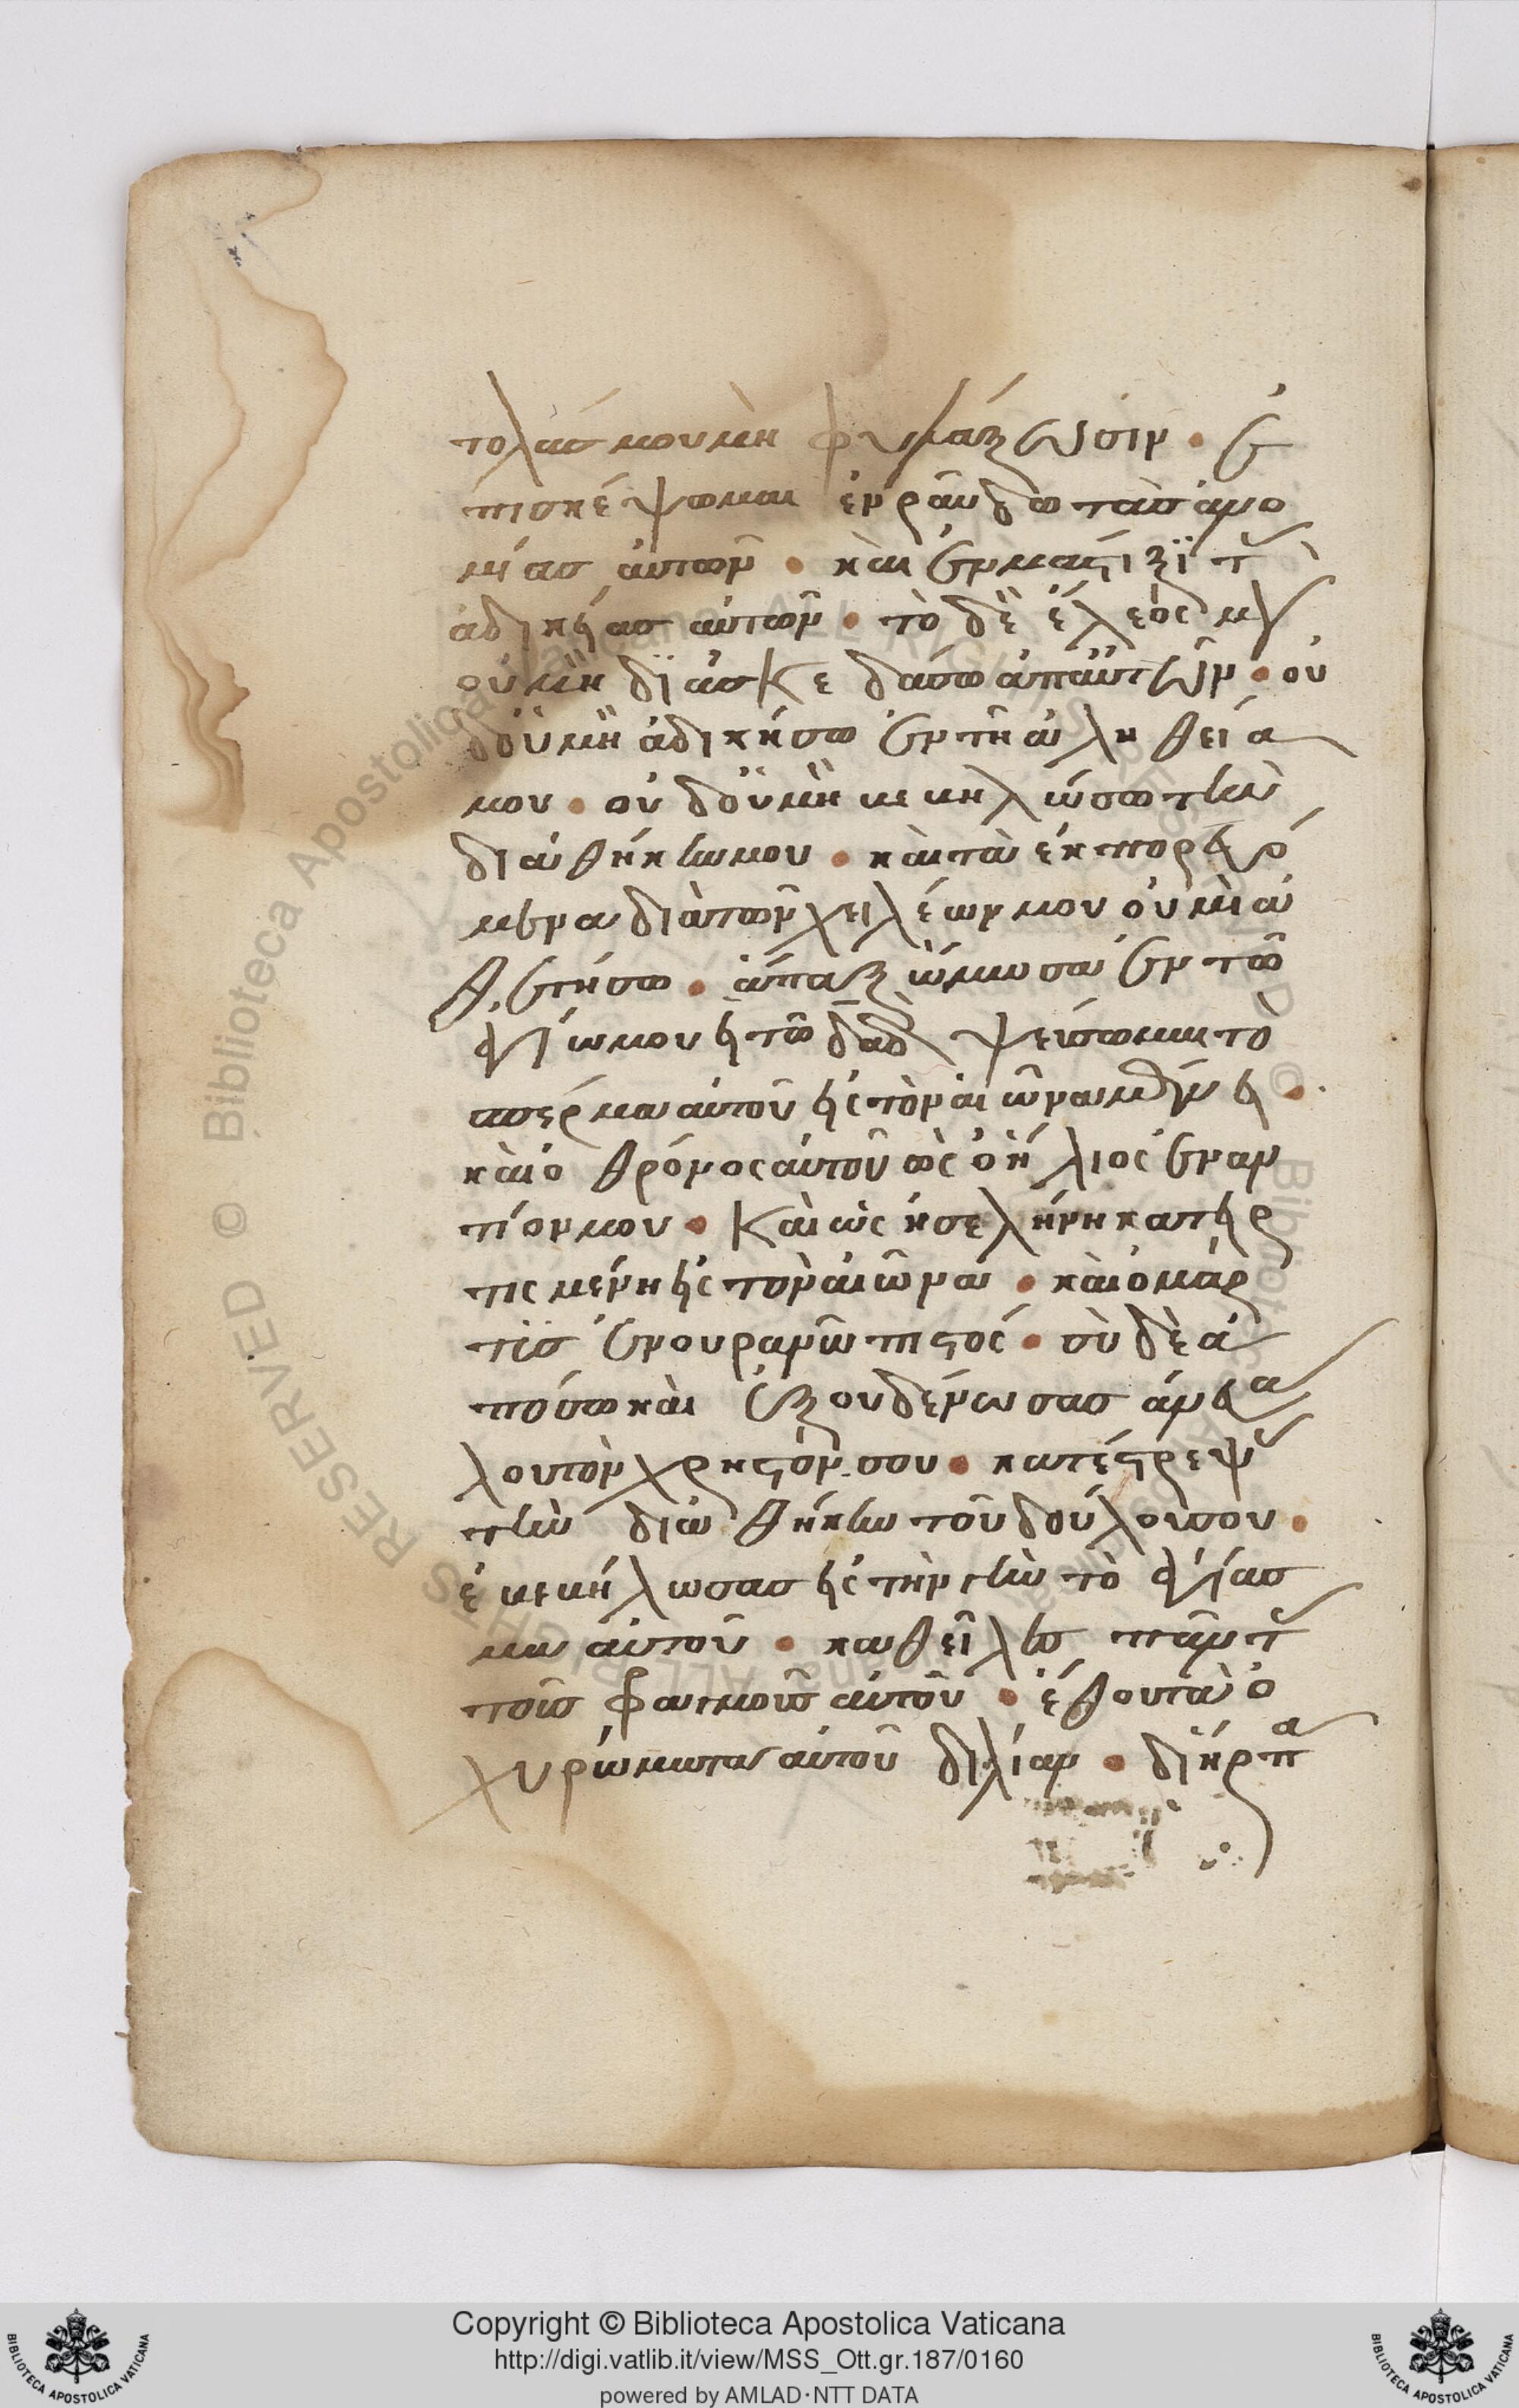 τολάσ μου μὴ φυλάξωσιν · ἐ
πισκέψωμαι ἐν ράβδω τὰσ ἀνο
μίασ ἀυτῶν · καὶ ἐν μάστιξϊ τ(ὰσ)
ἀδικείασ ἀυτῶν · τὸ δὲ ἔλεός μου
οὐ μὴ δϊασκεδάσω ἀπ ἀυτῶν · οὐ
δ οὐ μὴ ἀδικήσω ἐν τῆ ἀληθεία
μου · οὐ δ οὐ μὴ βεβηλώσω τὴν
διαθήκην μου · καὶ τὰ ἐκπορευό
μενα διὰ τῶν χειλέων μου οὐ μὴ ἀ
θετήσω · ἅπαξ ὤμωσα ἐν τῶ
ἁγίω μου εἰ τῶ δαδ ψεύσωμαι τὸ
σπέρμα ἀυτοῦ εἰς τὸν αἰῶνα μένει ·
καὶ ὁ θρόνος ἀυτοῦ ὡς ὁ ἥλιος ἐναν
τίον μου · καὶ ὡς ἡ σελήνη κατηρ
τισμένη εἰς τὸν αἰῶνα · καὶ ὁ μάρ
τϋσ ἐν ουρανῶ πιστός · σὺ δὲ ἀ
πόσω καὶ ἐξουδένωσασ ἀνεβα
λου τὸν χρηστόν σου · κατέστρεψ(ασ)
τὴν διαθήκην τοῦ δούλου σου ·
ἐβεβήλωσασ εἰς τὴν γῆν τὸ ἁγίασ
μα ἀυτοῦ · καθεῖλεσ πάντ(ασ)
τοὺσ φραγμοὺσ ἀυτοῦ · ἔθου τὰ ὀ
χυρώματα ἀυτοῦ δειλίαν · διήρπα
Copyright © Biblioteca Apostolica Vaticana
http://digi.vatlib.it/view/MSS_Ott.gr.187/0160
powered by AMLAD·NTT DATA